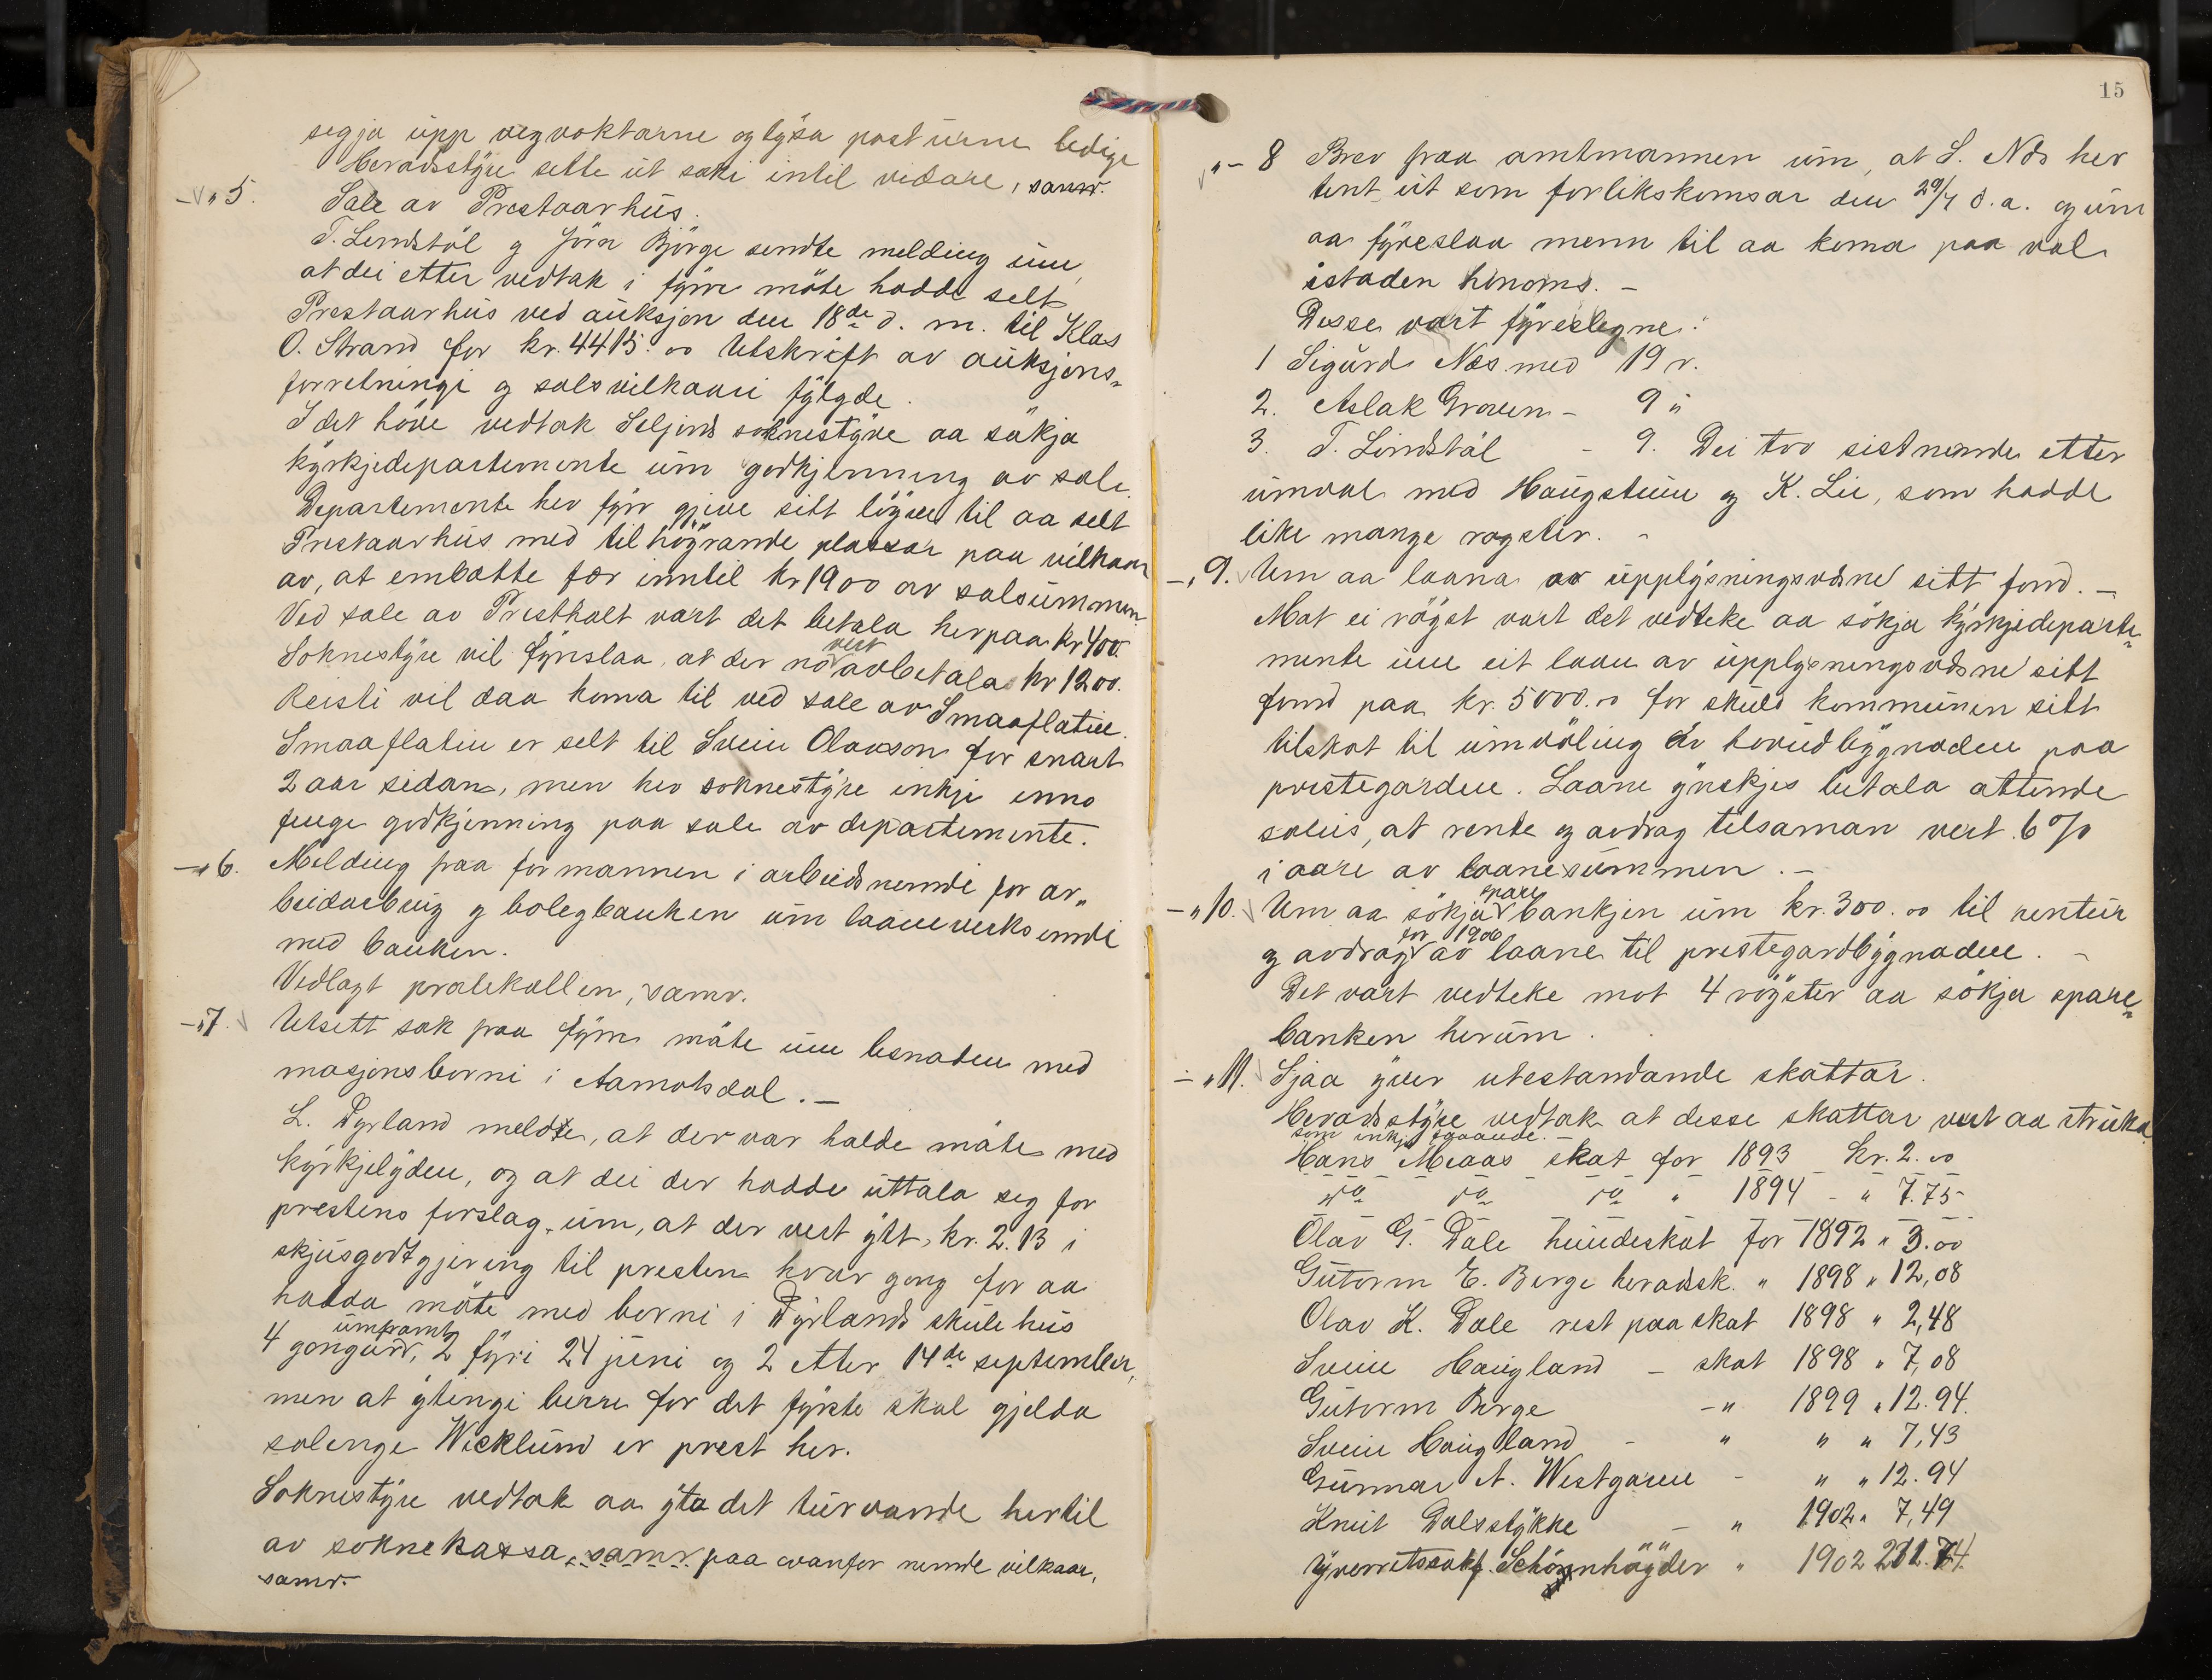 segja upp vegvoktarne og lysa posturne ledige
Heradsstyre sette ut saki intil vidare, samr.
- " 5. Sale av Prestaarhus.
T. Lindstöl og Jörn Björge sendte melding um,
at dei etter vedtak i fyrre möte hadde selt
Prestaarhus ved auksjon den 18de d. m. til Klas
O. Strand for kr. 4415.00 Utskrift av auksjons-
forretningi og salsvilkaari fylgde.
I det höve vedtok Seljord soknestyre aa sökja
kyrkjedepartemente um godkjenning av sale.
Departemente hev fyrr gjeve sitt löyve til aa selt
Prestaarhus med tilhöyrande plassar paa vilkaar
av, at embætte fær inntil kr 1900 av salsummen.
Ved sale av Prestholt vart det betala herpaa kr 400.
Soknestyre vil fyreslaa, at der no vert avbetala kr 1200.
Reisti vil daa koma til ved sale av Smaaflatin.
Smaaflatin er selt til Svein Olavson for snart
2 aar sidan, men hev soknestyre inkje enno
fenge godkjenning paa sale av departemente.
- " 6. Melding fraa formannen i arbeidsnemdi for ar-
beidarbrug og bolegbanken um laaneverksemdi
med banken.
Vedlagt protokollen, samr.
- " 7. Utsett sak fraa fyrre möte um kosnaden med
masjonsborni i Aamotsdal. -
L. Dyrland meldte, at der var halde möte med
kyrkjelyden, og at dei der hadde uttala seg for
prestens forslag um, at der vert ytt kr. 2.13 i
skjusgodtgjering til presten kvar gong for aa
hadda möte med borni i Dyrlands skulehus
4 gongur umframt, 2 fyri 24 juni og 2 etter 14de september,
men at ytingi berre for det fyrste skal gjelda
solenge Wicklund er prest her.
Soknestyre vedtok aa yta det turvande hertil
av soknekassa, samr. paa ovanfor nemde vilkaar,
samr.
15
" - 8 Brev fraa amtmannen um, at S. Næs hev
tent ut som forlikskomsar den 29/4 d.a. og um
aa fyreslaa menn til aa koma paa val
istaden honoms. -
Desse vart fyreslegne:
1 Sigurd Næs med 19 r.
2. Aslak Groven - 9 "
3. T. Lindstöl - 9. Dei tvo sistnemde etter
umval med Haugstun og K. Lie, som hadde
like mange royster. -
- " 9. Um aa laana av upplysningsvæsne sitt fond. -
Mot ei röyst vart det vedteke aa sökja kyrkjedeparte-
mente um eit laan av upplysningsvæsne sitt
fond paa kr. 5000.00 for skuld kommunen sitt
tilskot til umvöling av hovudbygnaden paa
prestegarden. Laane ynskjes betala attende
soleis, at rente og avdrag tilsaman vert 6%
i aare av laanesummen. -
- " 10. Um aa sökja sparebankjen um kr. 300.00 til rentur
og avdrag for 1906 av laane til prestegardbygnaden. -
Det vart vedteke mot 4 röyster aa sökja spare-
banken herum.
- " 11. Sjaa yver utestandande skattar.
Heradsstyre vedtok at desse skattar vert aa struka
som inkje faaande. -
Hans Moaas skat for 1893 Kr. 2.00
do do do " 1894 - " 7.75
Olav G. Dale hundeskat for 1892 " 3.00
Gutorm E. Berge heradsk. " 1898 " 12,08
Olav K. Dale rest paa skat 1898 " 2,48
Svein Haugland - skat 1898 " 7,08
Gutorm Berge - " 1899 " 12.94.
Svein Haugland - " " " 7,43
Gunnar A. Westgaren - " " 12.94
Knut Dalsstykke - " 1902 " 7,49
Yverrettssakf. Schönnhöyder " 1902 211.74